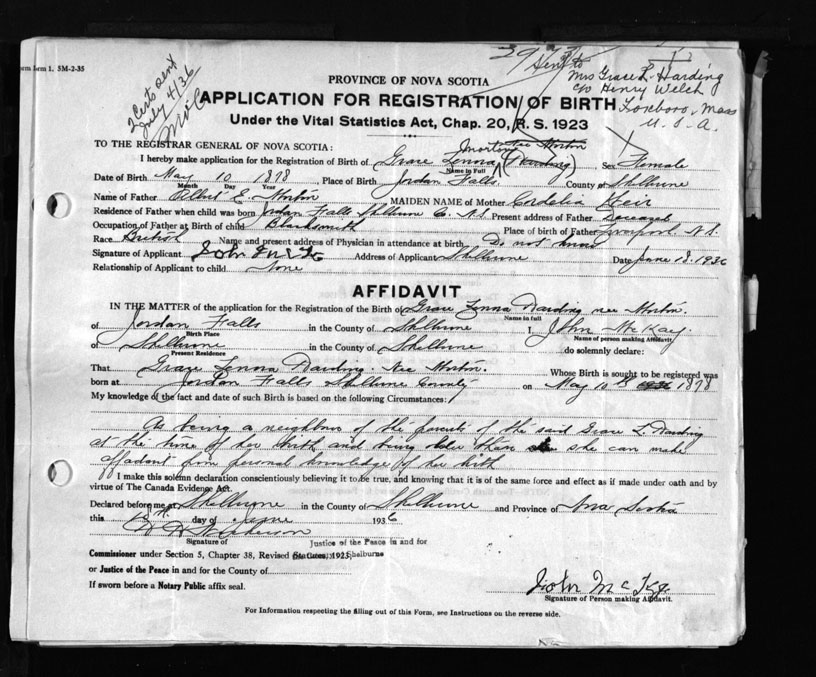 form 1. 5M-2-35
2 Certs sent
July 4/36
Sent to
Mrs Grace L. Harding
c/o Henry Welch
Foxboro, Mass
U. S. A.
PROVINCE OF NOVA SCOTIA
APPLICATION FOR REGISTRATION OF BIRTH
Under the Vital Statistics Act, Chap. 20, R. S. 1923
TO THE REGISTRAR GENERAL OF NOVA SCOTIA:
I hereby make application for the Registration of Birth of Grace Lenora Morton (Harding) nee Morton Sex Female
Name in Full
Date of Birth May 10 1878, Place of Birth Jordan Falls County of Shelburne
Month Day Year
Name of Father Albert E. Morton MAIDEN NAME of Mother Cordelia
Residence of Father when child was born Jordan Falls Shelburne Co. N.S. Present address of Father Deceased
Occupation of Father at Birth of child Blacksmith Place of birth of Father Liverpool N.S.
Race British Name and present address of Physician in attendance at birth Do not know
Signature of Applicant John McKay Address of Applicant Shelburne Date June 18. 1936
Relationship of Applicant to child None
AFFIDAVIT
IN THE MATTER of the application for the Registration of the Birth of Grace Lenora Harding nee Morton.
Name in full
of Jordan Falls in the County of Shelburne I, John McKay.
Birth Place Name of person making Affidavit,
of Shelburne in the County of Shelburne do solemnly declare:
Present Residence
That Grace Lenora Harding. Nee Morton. Whose Birth is sought to be registered was
born at Jordan Falls Shelburne County on May 10th 1878
My knowledge of the fact and date of such Birth is based on the following Circumstances:
As being a neighbour of the parents of the said Grace L. Harding
at the time of her birth and being older than she can make
affidavit from personal knowledge of her birth
I make this solemn declaration conscientiously believing it to be true, and knowing that it is of the same force and effect as if made under oath and by
virtue of The Canada Evidence Act.
Declared before me at Shelburne in the County of Shelburne and Province of Nova Scotia
this day of June 1936
Signature of Justice of the Peace in and for
Commissioner under Section 5, Chapter 38, Revised Statutes, 1923, Shelburne
or Justice of the Peace in and for the County of
If sworn before a Notary Public affix seal.
John McKay
Signature of Person making Affidavit.
For Information respecting the filling out of this Form, see Instructions on the reverse side.